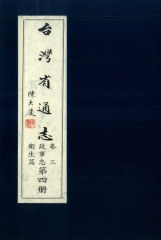 台灣省通志
卷三
政事志
衛生篇
第四冊
陳大慶